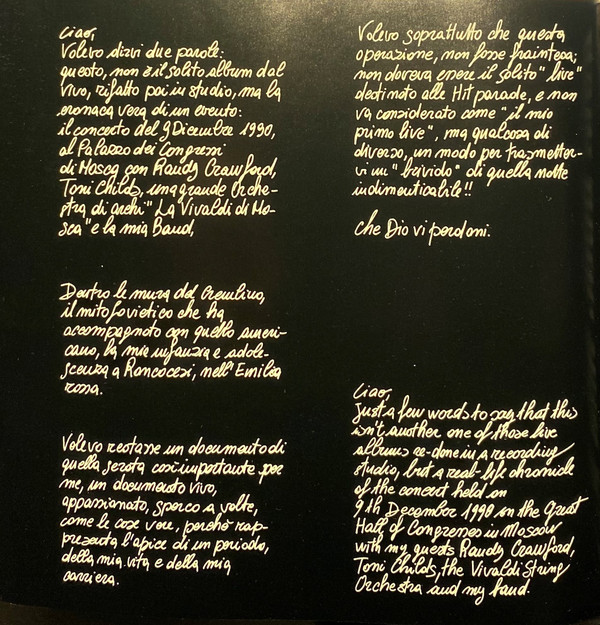 Ciao,
Volevo dirvi due parole:
questo, non è il solito album dal
vivo, rifatto poi in studio, ma la
cronaca vera di un evento:
il concerto del 9 Dicembre 1990,
al Palazzo dei Congressi
di Mosca con Randy Crawford,
Toni Childs, una grande Orche-
stra di archi "La Vivaldi di Mo-
sca" e la mia Band,
Dentro le mura del Cremlino,
il mito sovietico che ha
accompagnato con quello ameri-
cano, la mia infanzia e adole-
scenza a Roncocesi, nell'Emilia
rossa.
Volevo restasse un documento di
quella serata così importante per
me, un documento vivo,
appassionato, sporco a volte,
come le cose vere, perché rap-
presenta l'apice di un periodo,
della mia vita e della mia
carriera.
Volevo soprattutto che questa
operazione, non fosse fraintesa;
non doveva essere il solito "live"
destinato alle Hit parade, e non
va considerato come "il mio
primo live", ma qualcosa di
diverso, un modo per trasmetter-
vi un "brivido" di quella notte
indimenticabile!!
che Dio vi perdoni.
Ciao,
Just a few words to say that this
isn't another one of those live
albums re-done in a recording
studio, but a real-life chronicle
of the concert held on
9th December 1990 in the Great
Hall of Congresses in Moscow
with my guests Randy Crawford,
Toni Childs, the Vivaldi String
Orchestra and my band.